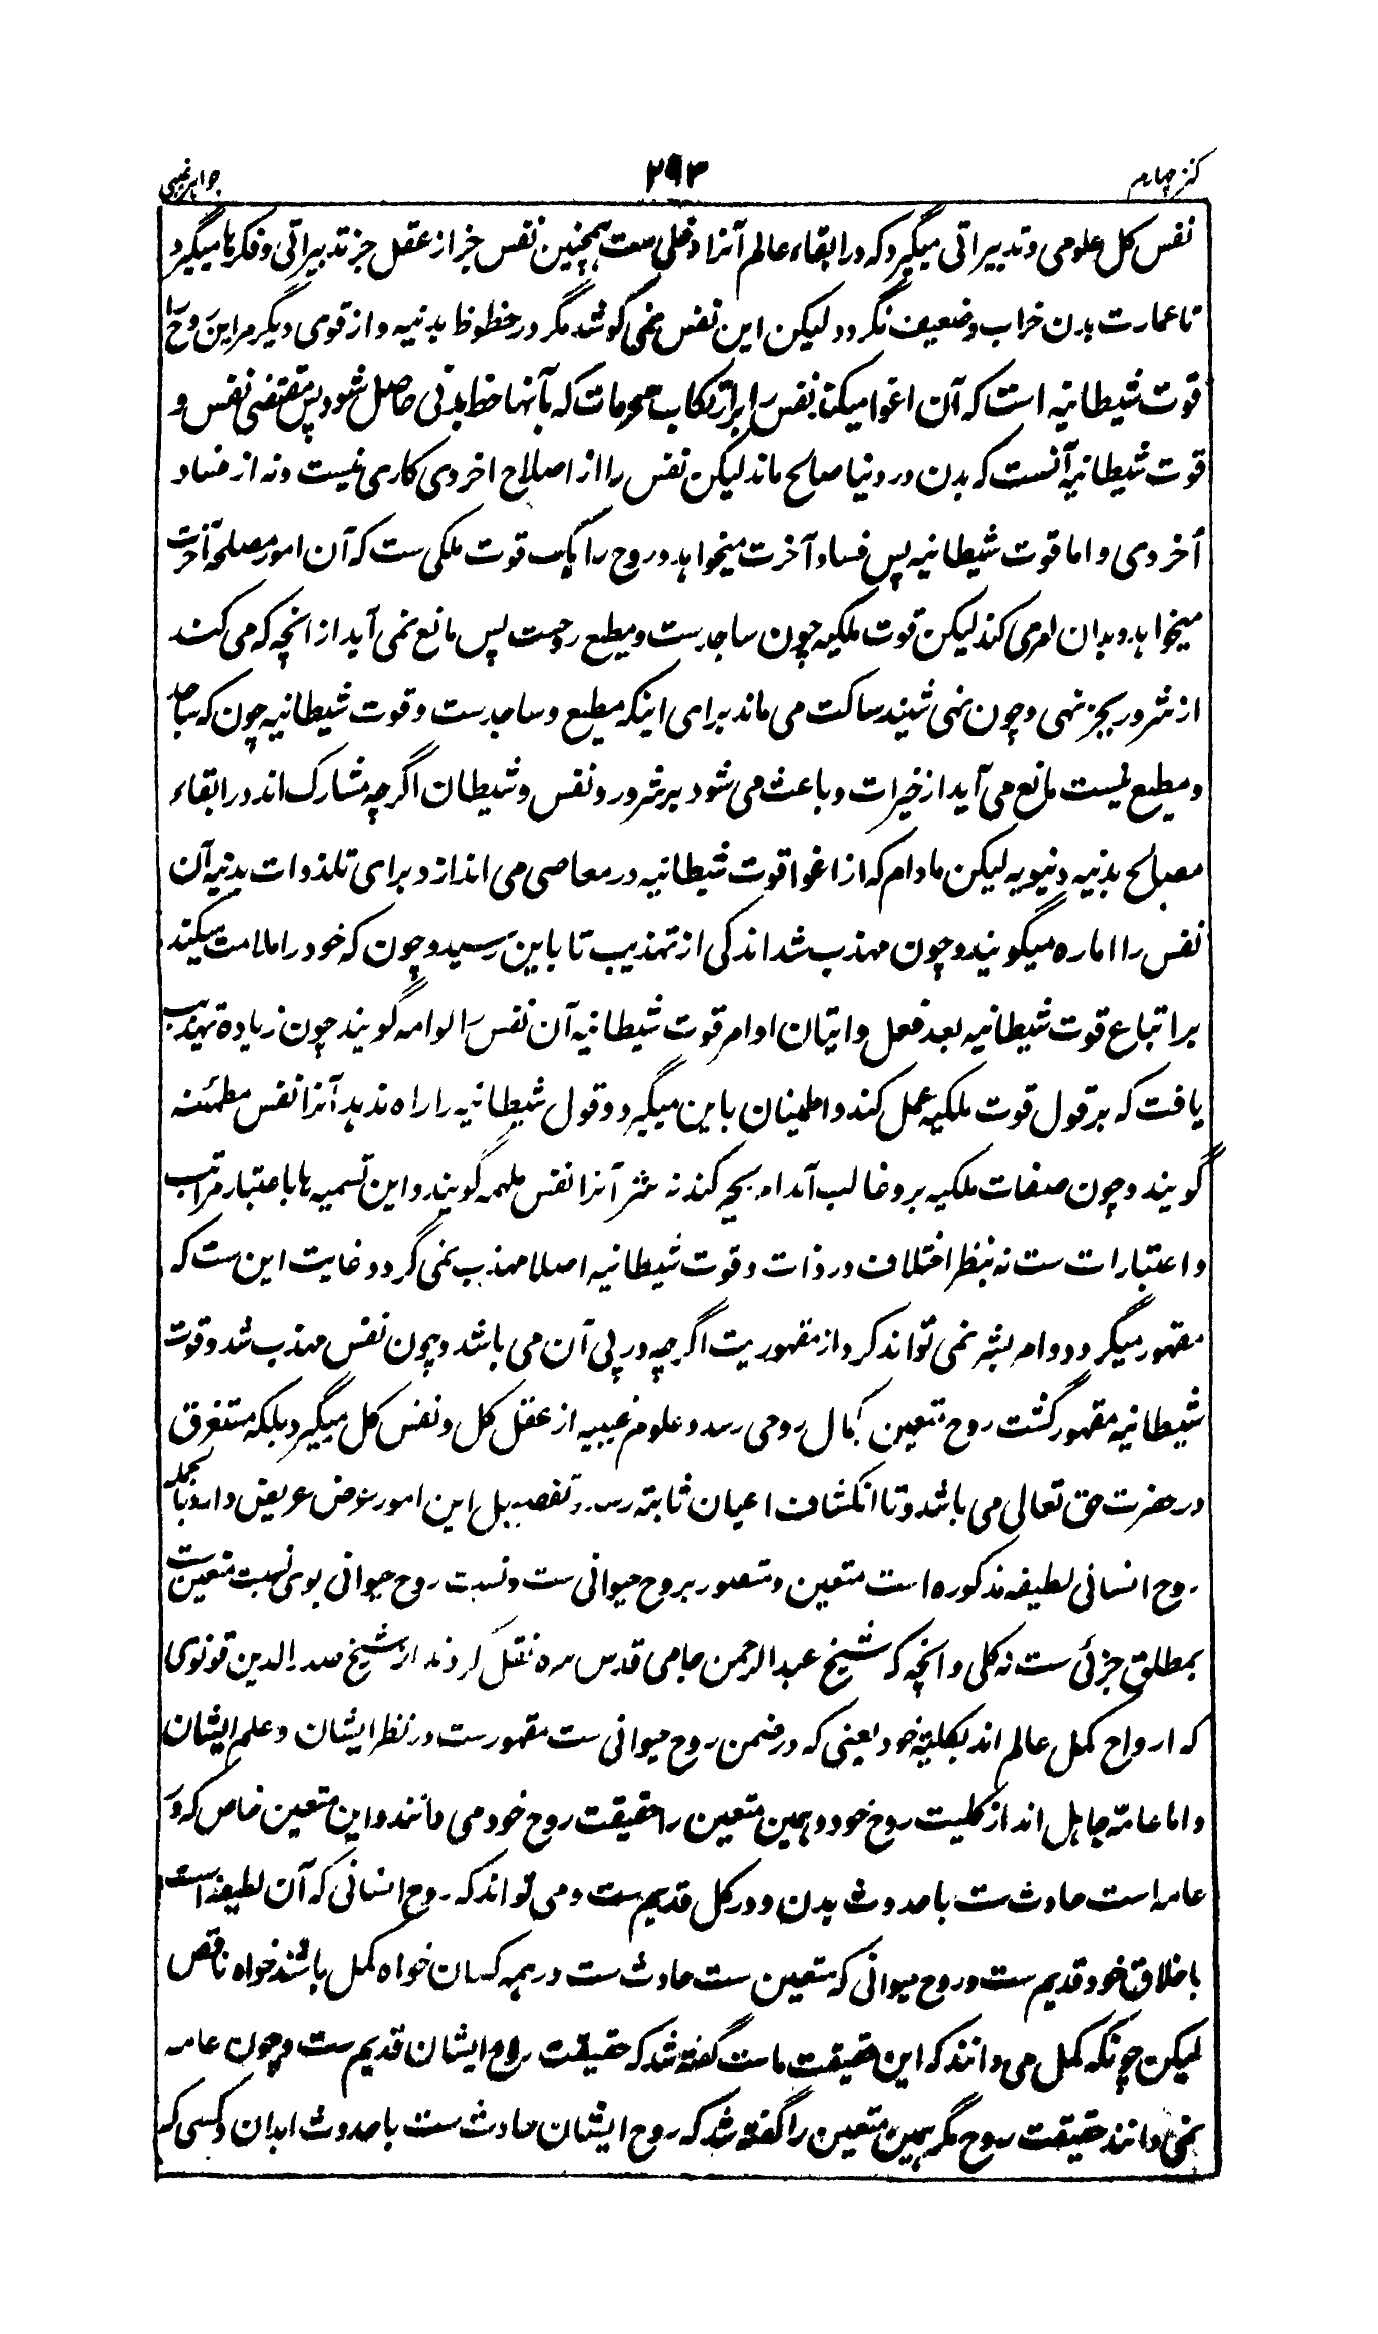 کنز چهارم
۲۹۳
جواهر غیبی
نفس کل علومی و تدبیراتی میگیرد که در ابقاء عالم آنرا دخلی ست همچنین نفس جز از عقل جز تدبیراتی و فکرها میگیرد
تا عمارت بدن خراب و ضعیف نگردد لیکن این نفس نمی کوشد مگر در حظوظ بدنیه و از قوی دیگر مر این روح را
قوت شیطانیه است که آن اغوا میکند نفس را بر ارتکاب محرمات که بآنها حظ بدنی حاصل شود پس مقتضی نفس و
قوت شیطانیه آنست که بدن در دنیا صالح ماند لیکن نفس را از اصلاح اخروی کاری نیست و نه از فساد
اخروی و اما قوت شیطانیه پس فساد آخرت میخواهد و روح را یک قوت ملکی ست که آن امور مصلحه آخرت
میخواهد و بدان امر می کند لیکن قوت ملکیه چون ساجد ست و مطیع روحست پس مانع نمی آید از انچه که می کند
از شرور بجز نهی و چون نمی شنید ساکت می ماند برای اینکه مطیع و ساجد ست و قوت شیطانیه چون که ساجد
و مطیع نیست مانع می آید از خیرات و باعث می شود بر شرور و نفس و شیطان اگرچه مشارک اند در ابقاء
مصالح بدنیه دنیویه لیکن مادام که از اغوا قوت شیطانیه در معاصی می اندازد برای تلذذات بدنیه آن
نفس را اماره میگویند و چون مهذب شد اندکی از تهذیب تا باین رسید و چون که خود را ملامت میکند
بر اتباع قوت شیطانیه بعد فعل و اتیان اوامر قوت شیطانیه آن نفس را لوامه گویند چون زیادة تهذیب
یافت که بر قول قوت ملکیه عمل کند و اطمینان باین میگیرد و قول شیطانیه را راه ندهد آنرا نفس مطمئنه
گویند و چون صفات ملکیه برو غالب آمد امر بخیر کند نه شر آنرا نفس ملهمه گویند و این تسمیه ها باعتبار مراتب
و اعتبارات ست نه بنظر اختلاف در ذات و قوت شیطانیه اصلا مهذب نمی گردد غایت این ست که
مقهور میگردد و امر بشر نمی تواند کرد از مقهوریت اگرچه در پی آن می باشد و چون نفس مهذب شد و قوت
شیطانیه مقهور گشت روح متعین بکمال روحی رسد و علوم غیبیه از عقل کل و نفس کل میگیرد بلکه مستغرق
در حضرت حق تعالی می باشد و تا انکشاف اعیان ثابته رسد و تفصیل این امور عرض عریض دارد بالجمله
روح انسانی لطیفه مذکوره است متعین و متصور بروح حیوانی ست و نسبت روح حیوانی بوی نسبت متعین ست
بمطلق جزئی ست نه کلی و انچه که شیخ عبدالرحمن جامی قدس سره نقل کردند از شیخ صدر الدین قونوی
که ارواح کمل عالم اند بکلیة خود یعنی که در ضمن روح حیوانی ست مقهور ست در نظر ایشان و علم ایشان
و اما عامّه جاهل اند از کلیت روح خود و همین متعین را حقیقت روح خود می دانند و این متعین خاص که در
عامه است حادث ست با حدوث بدن و در کل قدیم ست و می تواند که روح انسانی که آن لطیفه است
باطلاق خود قدیم ست و روح حیوانی که متعین ست حادث ست در همه کسان خواه کمل باشند خواه ناقص
لیکن چونکه کمل می دانند که این حقیقت ماست گفته شد که حقیقت روح ایشان قدیم ست و چون عامه
نمی دانند حقیقت روح مگر همین متعین را گفته شد که روح ایشان حادث ست با حدوث ابدان و کسی که